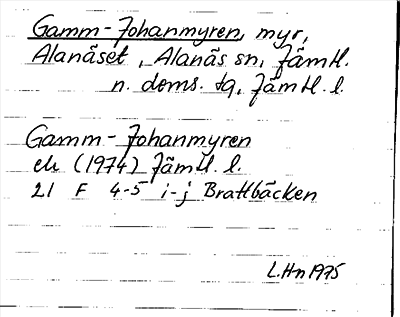 Gamm-Johanmyren, myr,
Alanäset, Alanäs sn, Jämtl.
n. doms. tg, Jämtl. l.
Gamm-Johanmyren
ek (1974) Jämtl. l.
21 F 4-5 i-j Brattbäcken
L.Hn 1975